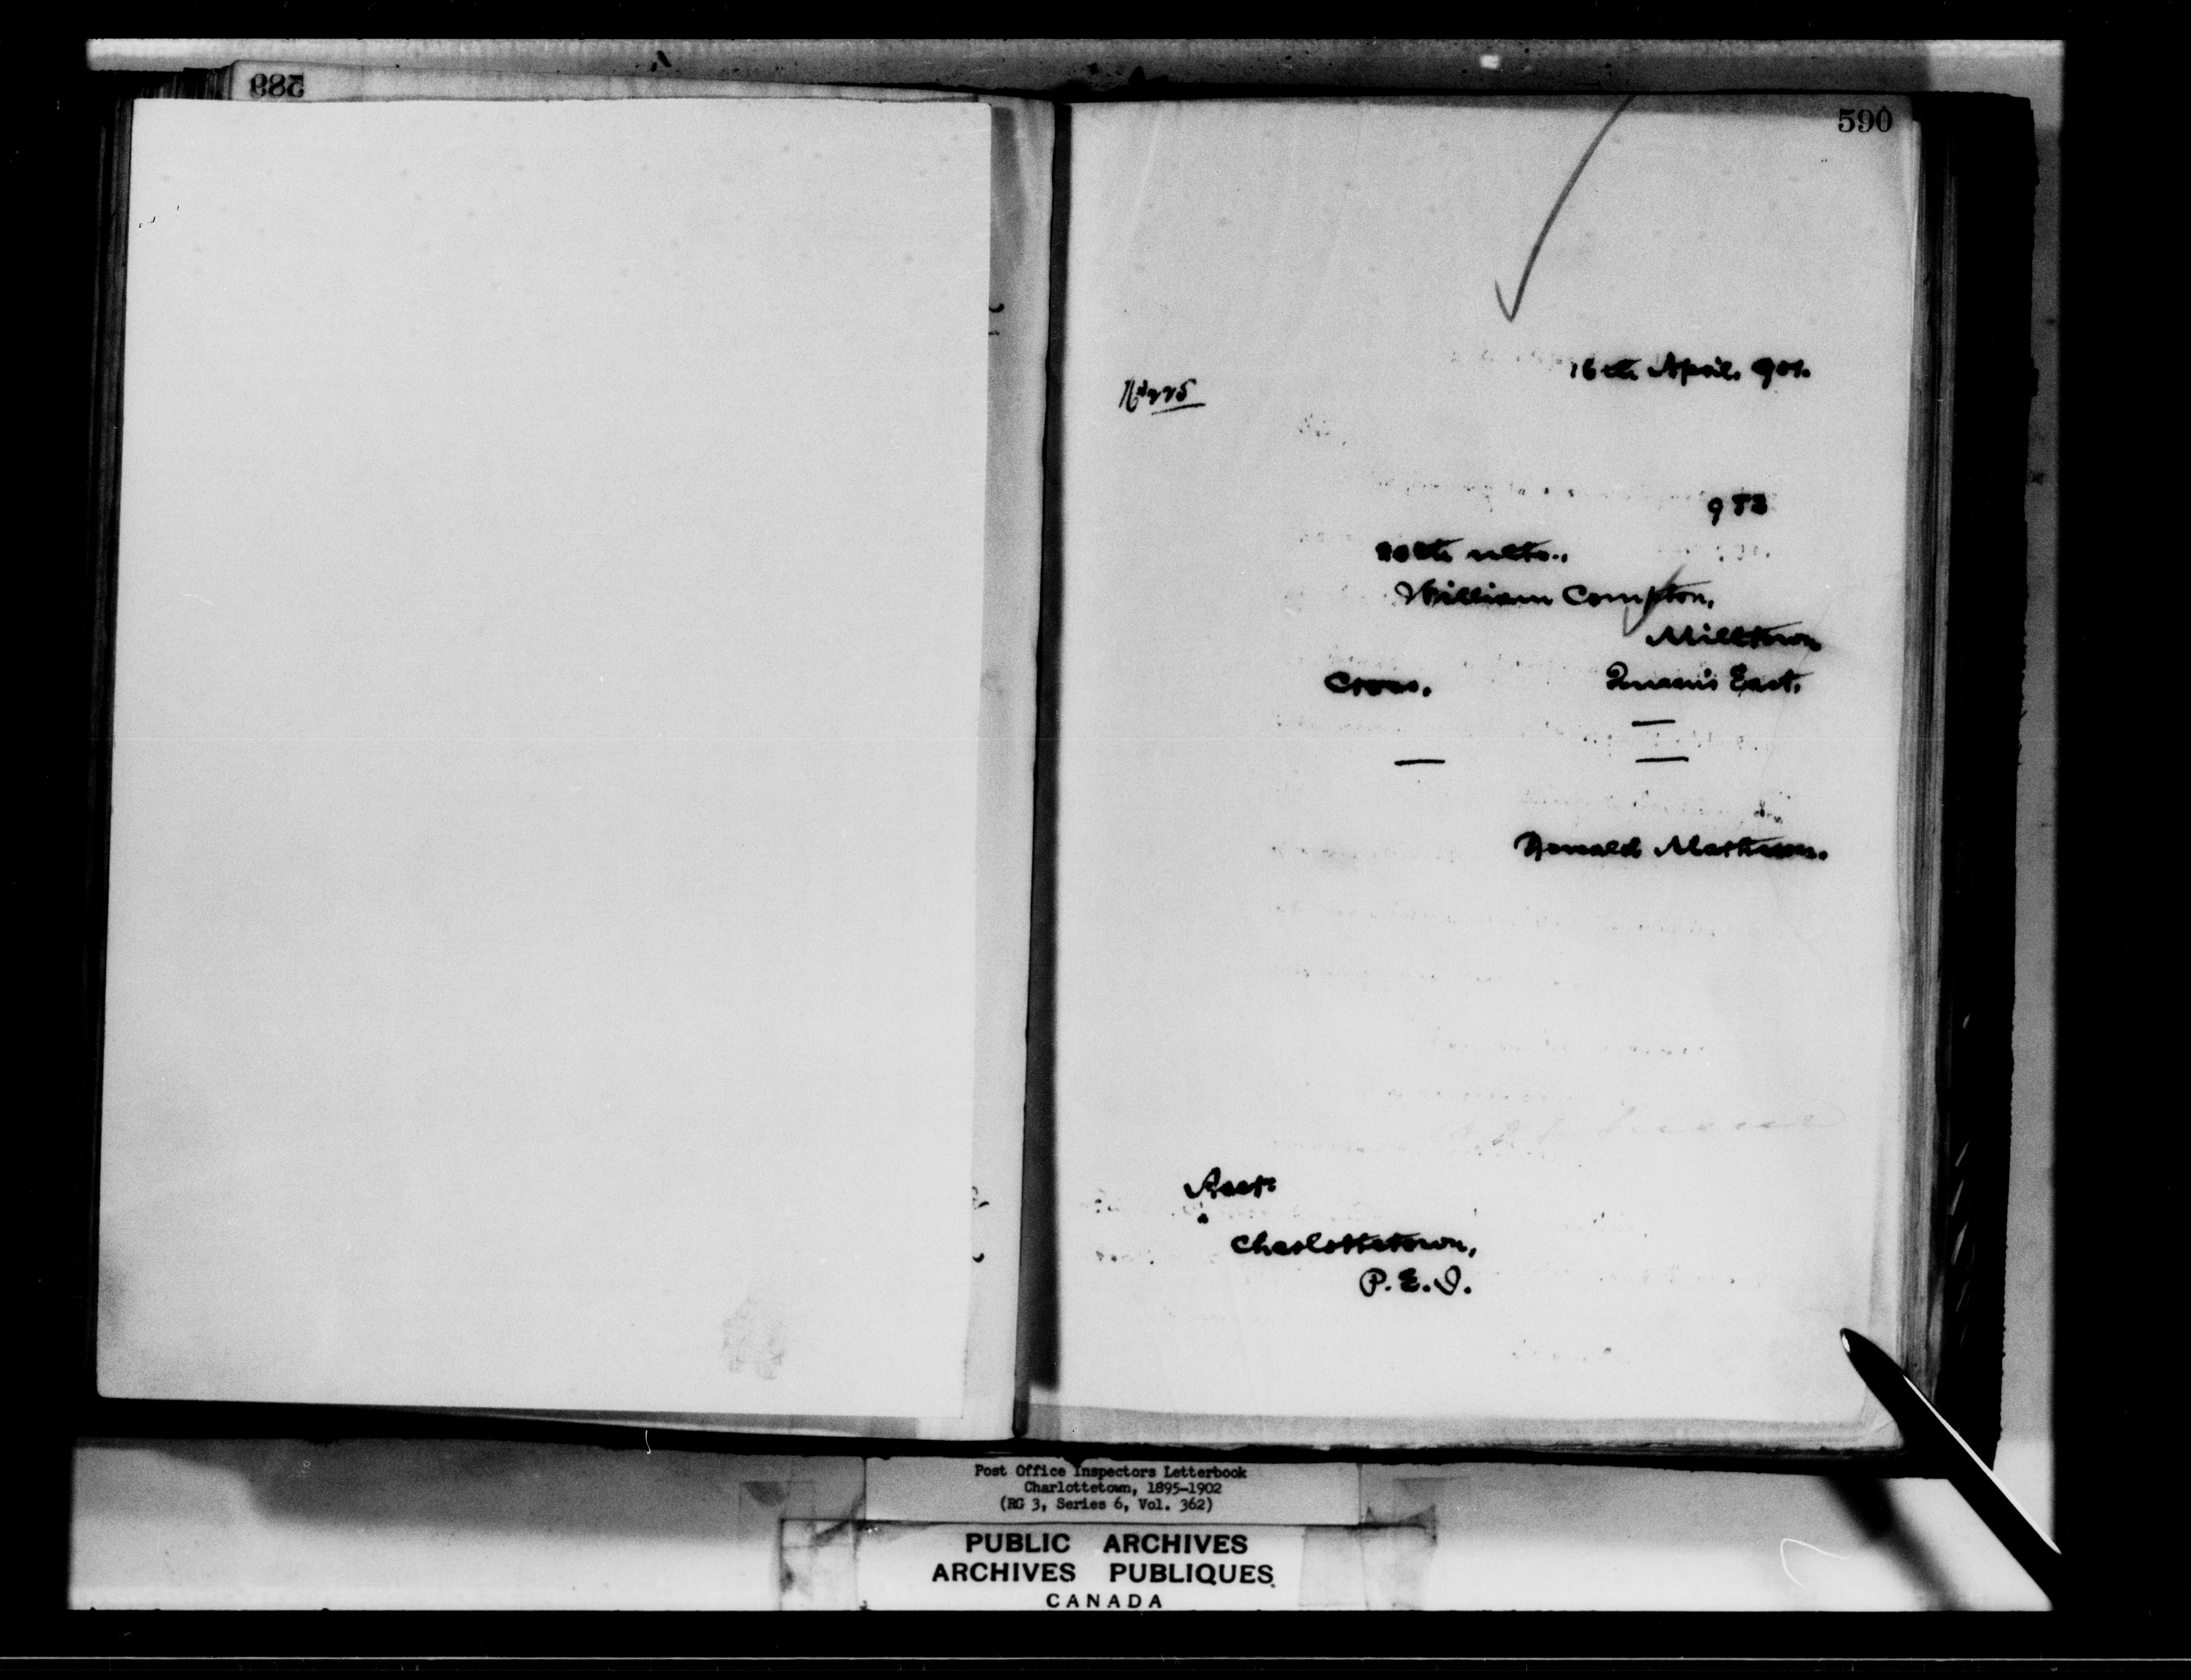 589
590
16th April, 901.
983
20th ulto.,
William Compton,
Milltown
Cross.
Queen's East.
—
—
—
Donald Matheson.
Asst:
Charlottetown,
P.E.I.
Post Office Inspectors Letterbook
Charlottetown, 1895-1902
(RG 3, Series 6, Vol. 362)
PUBLIC ARCHIVES
ARCHIVES PUBLIQUES
CANADA